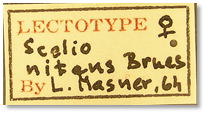 LECTOTYPE ♀
Scelio
nitens Brues
By L. Masner, 64